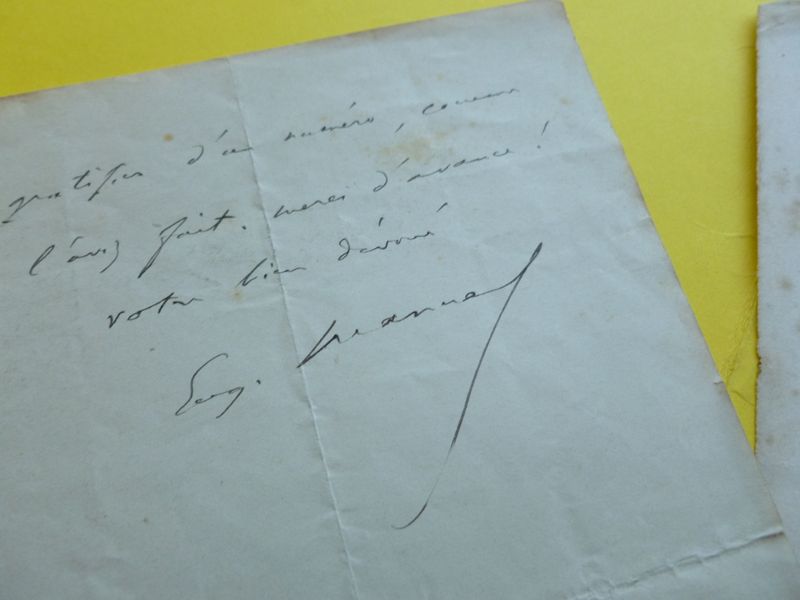 gratifier d'un numéro, comme
l'avez fait. merci d'avance !
votre bien dévoué
Eug. Manuel